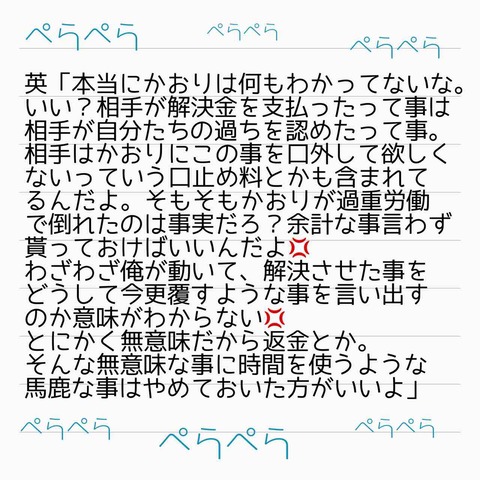 ぺらぺら
ぺらぺら
ぺらぺら
英「本当にかおりは何もわかってないな。
いい？相手が解決金を支払ったって事は
相手が自分たちの過ちを認めたって事。
相手はかおりにこの事を口外して欲しく
ないっていう口止め料とかも含まれて
るんだよ。そもそもかおりが過重労働
で倒れたのは事実だろ？余計な事言わず
貰っておけばいいんだよ💢
わざわざ俺が動いて、解決させた事を
どうして今更覆すような事を言い出す
のか意味がわからない💢
とにかく無意味だから返金とか。
そんな無意味な事に時間を使うような
馬鹿な事はやめておいた方がいいよ」
ぺらぺら
ぺらぺら
ぺらぺら